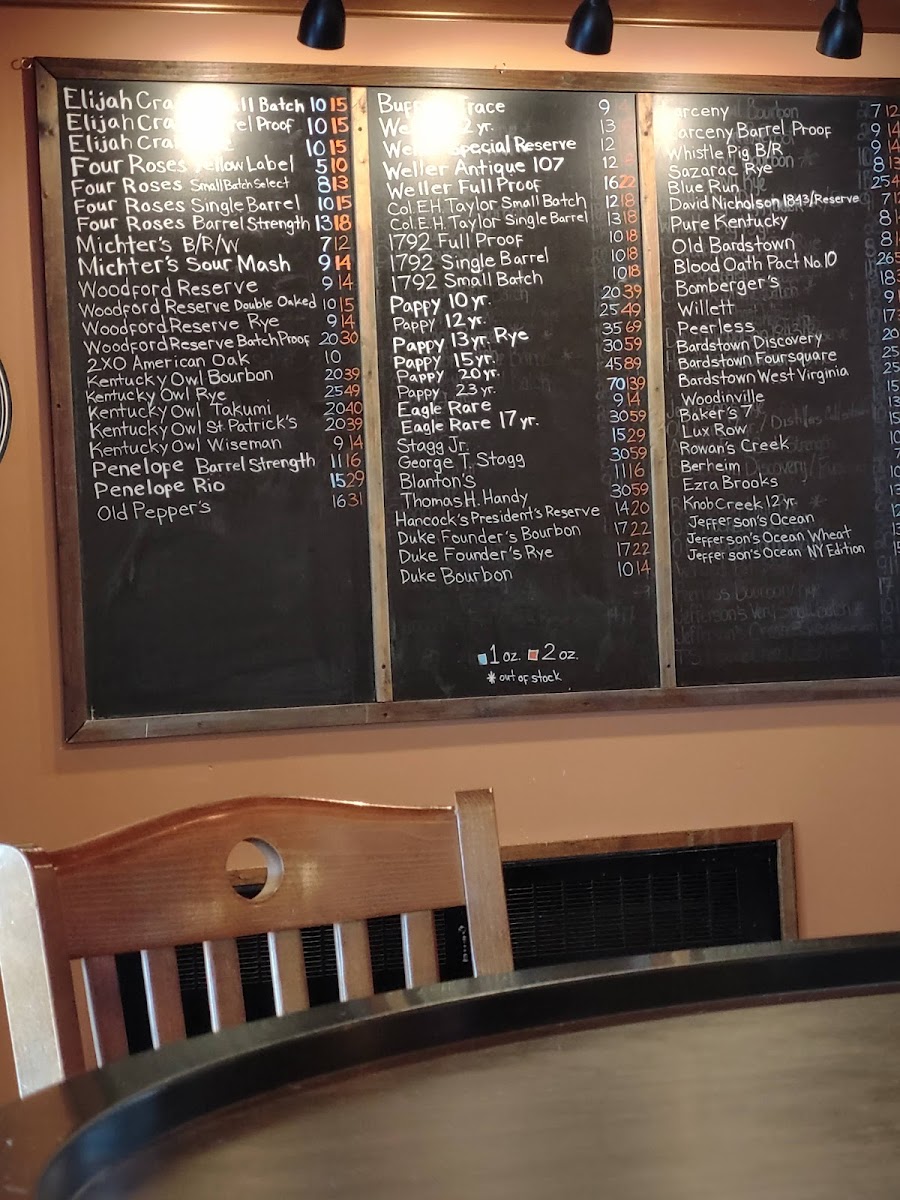 Elijah Cra ll Batch 10 15
Elijah Cra rel Proof 10 15
Elijah Cra 10 15
Four Roses Yellow Label 5 10
Four Roses Small Batch Select 8 13
Four Roses Single Barrel 10 15
Four Roses Barrel Strength 13 18
Michter's B/R/W 7 12
Michter's Sour Mash 9 14
Woodford Reserve 9 14
Woodford Reserve Double Oaked 10 15
Woodford Reserve Rye 9 14
Woodford Reserve Batch Proof 20 30
2XO American Oak 10
Kentucky Owl Bourbon 20 39
Kentucky Owl Rye 25 49
Kentucky Owl Takumi 20 40
Kentucky Owl St. Patrick's 20 39
Kentucky Owl Wiseman 9 14
Penelope Barrel Strength 11 16
Penelope Rio 15 29
Old Pepper's 16 31
Buff race 9
We 2 yr. 13
We Special Reserve 12
Weller Antique 107 12
Weller Full Proof 16 22
Col. E.H. Taylor Small Batch 12 18
Col. E.H. Taylor Single Barrel 13 18
1792 Full Proof 10 18
1792 Single Barrel 10 18
1792 Small Batch 10 18
Pappy 10 yr. 20 39
Pappy 12 yr. 25 49
Pappy 13 yr. Rye 35 69
Pappy 15 yr. 30 59
Pappy 20 yr. 45 89
Pappy 23 yr. 70 139
Eagle Rare 9 14
Eagle Rare 17 yr. 30 59
Stagg Jr. 15 29
George T. Stagg 30 59
Blanton's 11 16
Thomas H. Handy 30 59
Hancock's President's Reserve 14 20
Duke Founder's Bourbon 17 22
Duke Founder's Rye 17 22
Duke Bourbon 10 14
1 oz. 2 oz.
* out of stock
arceny 7 12
arceny Barrel Proof 9 14
Whistle Pig B/R 9 14
Sazarac Rye 8 13
Blue Run 25 4
David Nicholson 1843/Reserve 7 1
Pure Kentucky 8
Old Bardstown 8
Blood Oath Pact No. 10 26
Bomberger's 18
Willett 9
Peerless 17
Bardstown Discovery 20
Bardstown Foursquare 25
Bardstown West Virginia 25
Woodinville 15
Baker's 7 13
Lux Row 15
Rowan's Creek 10
Berheim 7
Ezra Brooks 10
Knob Creek 12 yr.
Jefferson's Ocean
Jefferson's Ocean Wheat
Jefferson's Ocean NY Edition